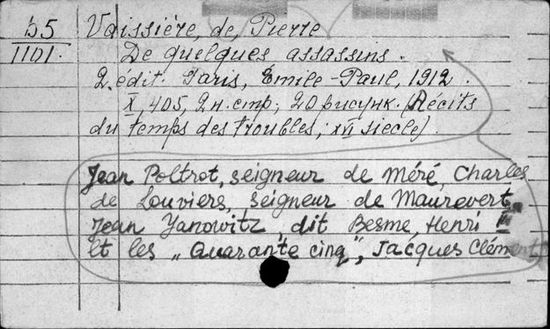 Б5
1101.
Vaissière, de, Pierre
De quelques assassins.
2 édit. Paris, Emile-Paul, 1912.
X, 405, 2 н. стр; 20 рисунк. (Récits
du temps des troubles, XVI siecle).
Jean Poltrot, seigneur de Méré, Charles
de Louviers, seigneur de Maurevert,
Jean Yanowitz, dit Besme, Henri
Et les „Quarante cinq", Jacques Clément